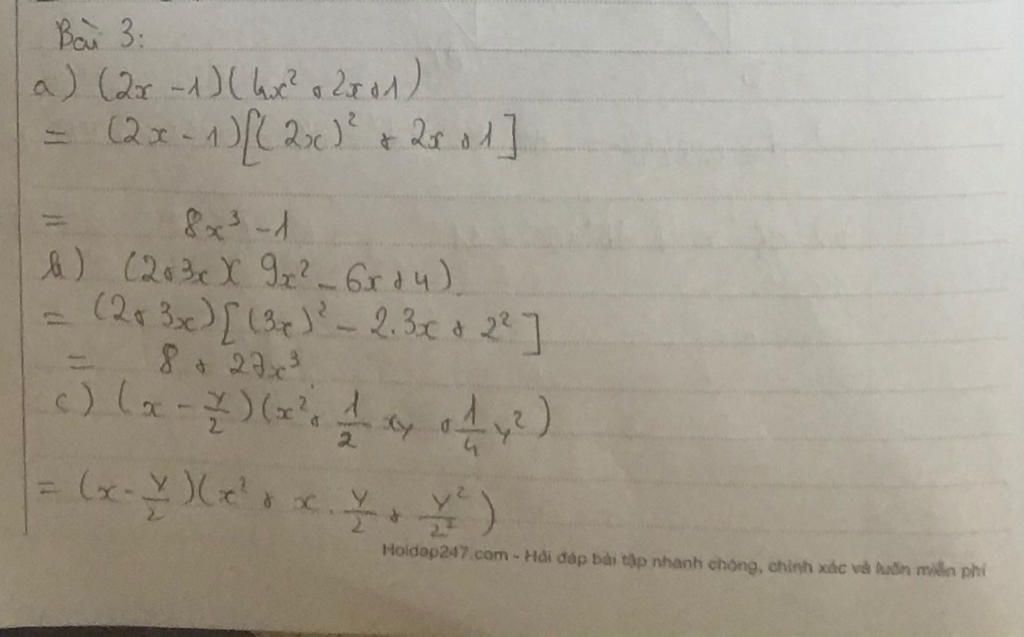 Bài 3:
a) (2x - 1)(4x² + 2x + 1)
= (2x - 1)[(2x)² + 2x + 1]
= 8x³ - 1
b) (2 + 3x)(9x² - 6x + 4)
= (2 + 3x)[(3x)² - 2.3x + 2²]
= 8 + 27x³
c) (x - y/2)(x² + 1/2 xy + 1/4 y²)
= (x - y/2)(x² + x . y/2 + y²/2²)
Hoidap247.com - Hỏi đáp bài tập nhanh chóng, chính xác và luôn miễn phí